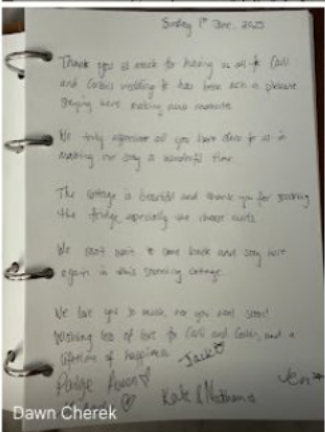 Sunday 1st June. 2025
Thank you so much for having us all for Calli
and wedding it has been such a pleasure
staying here making new moments
We truly appreciate all you have done for us in
making our stay a wonderful time
The cottage is beautiful and thank you for stocking
the fridge, especially the
We can't wait to come back and stay
again in this stunning cottage.
We love you so much, see you next soon!
Wishing lots of love for Calli and and a
lifetime of happiness
Jack
Paige
Kate & Nathan
Dawn Cherek